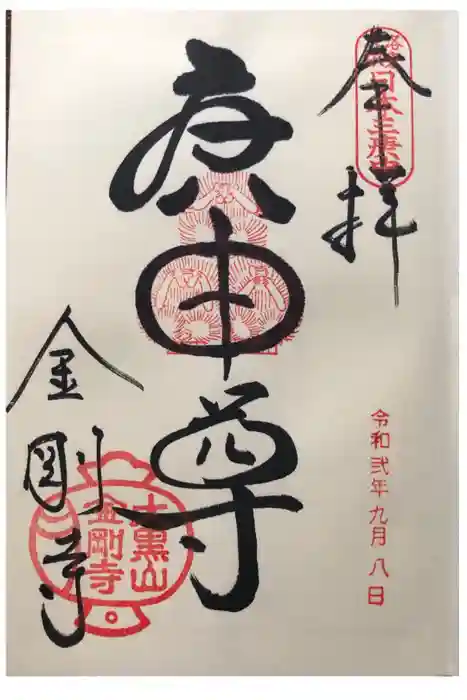 奉拝
日本三庚申
令和弐年九月八日
庚申尊
金剛寺
大黒山
金剛寺